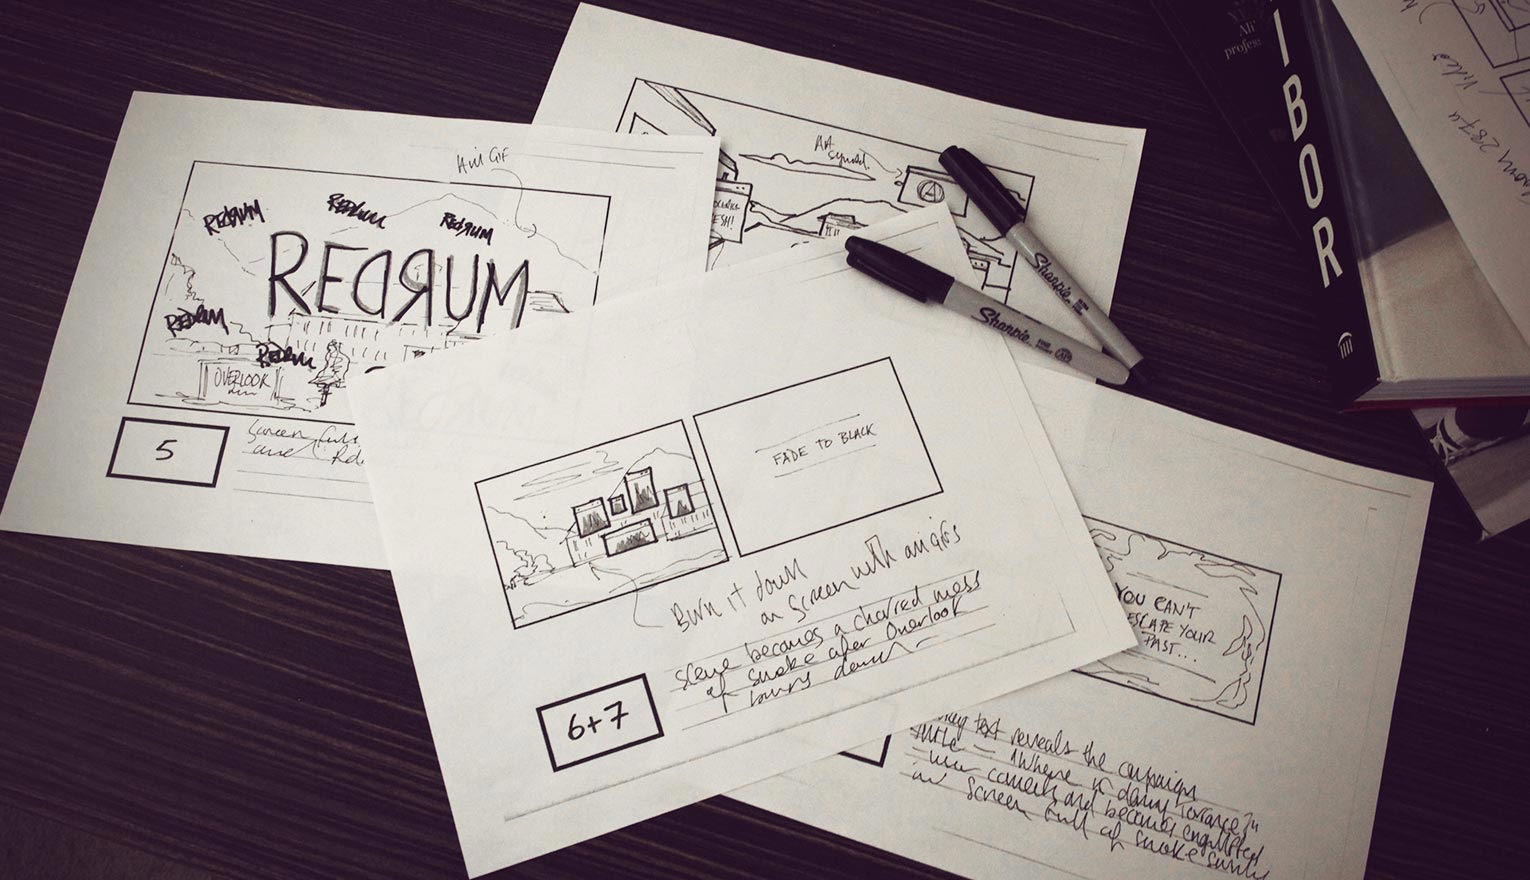 Ani GIF
REDRUM
REDRUM
REDRUM
REDRUM
REDRUM
REDRUM
OVERLOOK
5
Screen
and
AA
Squad
ESH!
Sharpie
Sharpie
FADE TO BLACK
Burn it down
on screen with ani gifs
Scene becomes a charred mess
of smoke after Overlook
burns down
6+7
YOU CAN'T
ESCAPE YOUR
PAST...
text reveals the campaign
title - Where is danny torrance? In
view comes and becomes engulfed
in screen full of smoke
IBOR
Ali
profess
Video